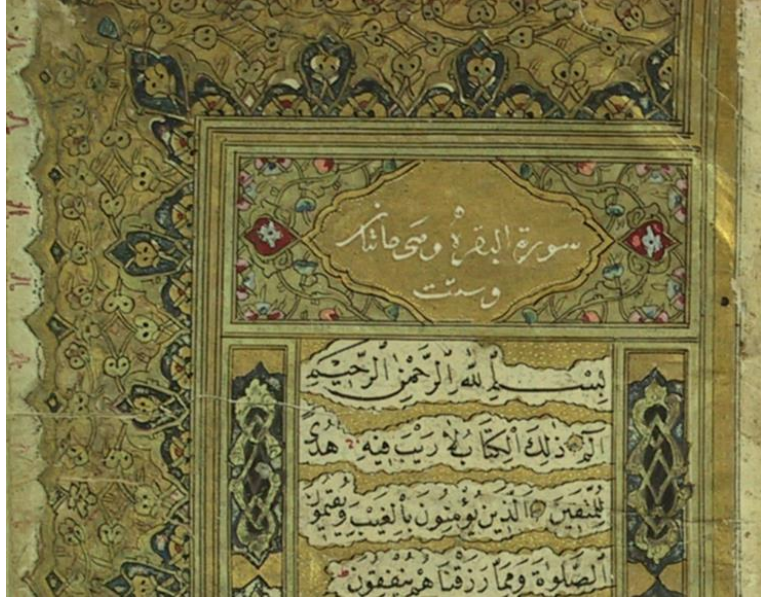 سورة البقرة وهي مائتان
وست
بِسْمِ اللّٰهِ الرَّحْمٰنِ الرَّحِيمِ
الٓمٓ ذٰلِكَ الْكِتَابُ لَا رَيْبَ فِيهِ هُدًى
لِلْمُتَّقِينَ الَّذِينَ يُؤْمِنُونَ بِالْغَيْبِ وَيُقِيمُونَ
الصَّلٰوةَ وَمِمَّا رَزَقْنَاهُمْ يُنْفِقُونَ